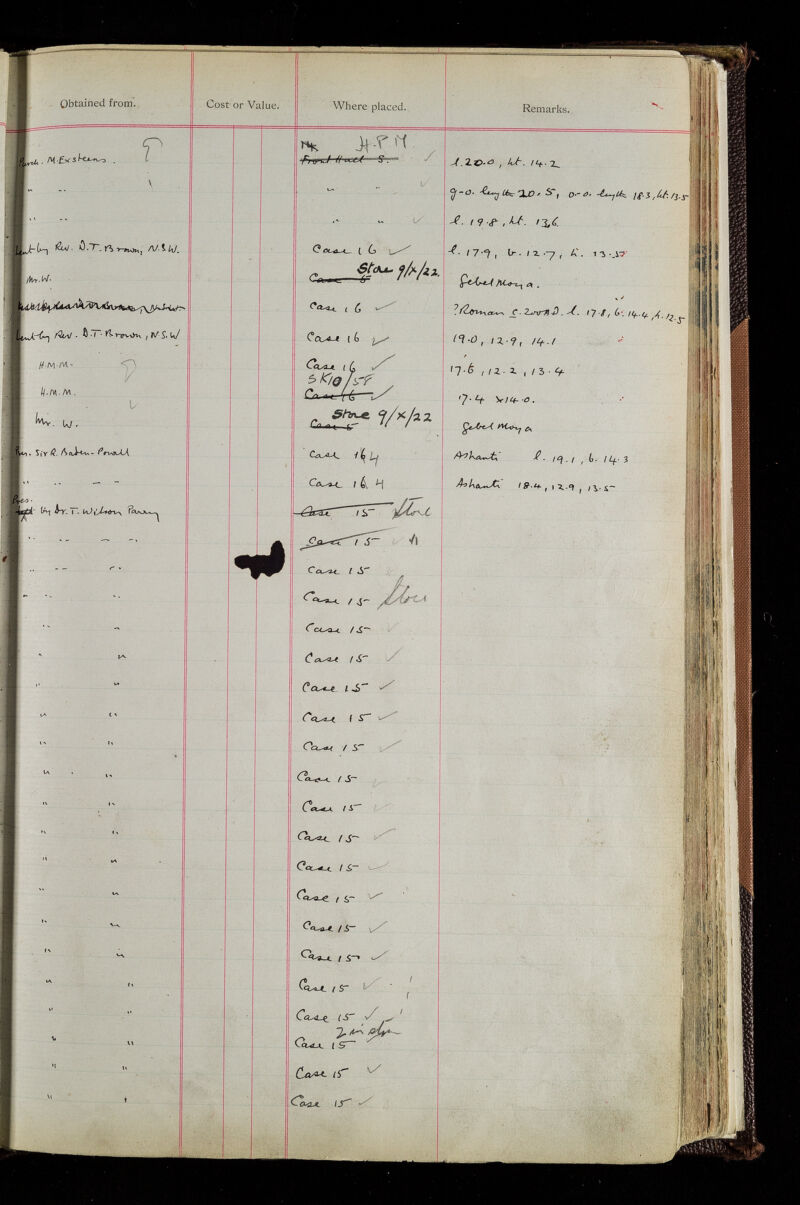 Obtained from. Cost or Value. Where placed. Remarks.
M. Exsteens. H.P.M
Front Hall S. l. 20.0, ht. 14.2
" " g-o. length 20.5, o-o. length 18.3, ht. 13.5
" " l. 19.8, ht. 13.6
by Rev. D.T. Brown, N.S.W. Case 16 l. 17.9, b. 12.7, h. 13.5
Mr. W. Case Store 9/X/22 Gebel Moya.
Case 16 ? Roman c. 200 A.D. l. 17.8, b. 14.4, h. 12.5
by Rev. D.T. Brown, N.S.W Case 16 19.0, 12.9, 14.1
H.M.M. Case 16 17.6, 12.2, 13.4
SK10/5F
H.M.M. Case 16 17.4 x 14.0.
Mr. W. Case Store 9/X/22 Gebel Moya
Sir R. Baden-Powell Case 164 Ashanti l. 19.1, b. 14.3
" " Case 164 Ashanti 18.4, 12.9, 13.5
Pres.
by Dr. T. Wilson Parry Case 15 Store
" " Case 15
" " Case 15
" " Case 15 Store
" " Case 15
" " Case 15
" " Case 15
" " Case 15
" " Case 15
" " Case 15
" " Case 15
" " Case 15
" " Case 15
" " Case 15
" " Case 15
" " Case 15
" " Case 15
" " Case 15
2 in
" " Case 15
" " Case 15
" Case 15